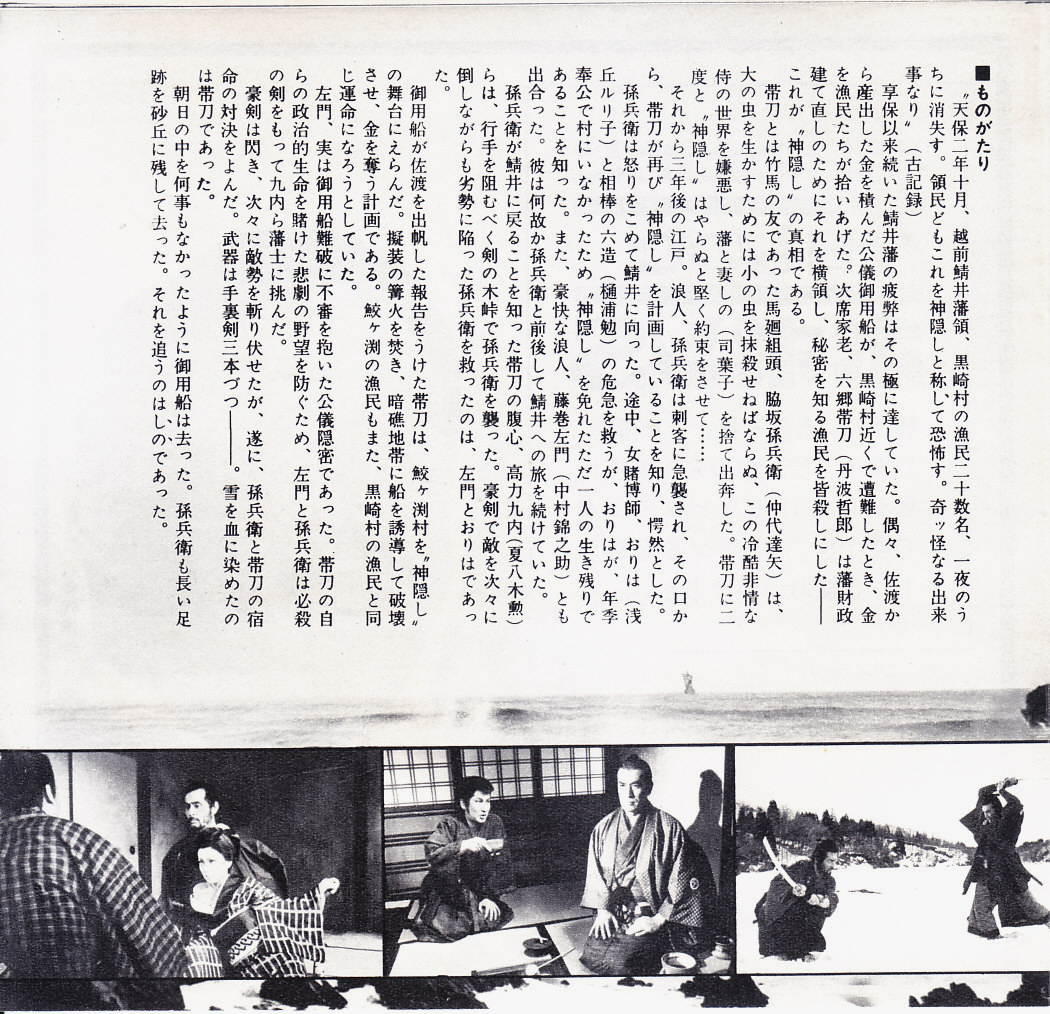 ■ものがたり
〝天保二年十月、越前鯖井藩領、黒崎村の漁民二十数名、一夜のう
ちに消失す。領民どもこれを神隠しと称して恐怖す。奇ッ怪なる出来
事なり〟（古記録）
享保以来続いた鯖井藩の疲弊はその極に達していた。偶々、佐渡か
ら産出した金を積んだ公儀御用船が、黒崎村近くで遭難したとき、金
を漁民たちが拾いあげた。次席家老、六郷帯刀（丹波哲郎）は藩財政
建て直しのためにそれを横領し、秘密を知る漁民を皆殺しにした――
これが〝神隠し〟の真相である。
帯刀とは竹馬の友であった馬廻組頭、脇坂孫兵衛（仲代達矢）は、
大の虫を生かすためには小の虫を抹殺せねばならぬ、この冷酷非情な
侍の世界を嫌悪し、藩と妻しの（司葉子）を捨て出奔した。帯刀に二
度と〝神隠し〟はやらぬと堅く約束をさせて……
それから三年後の江戸。浪人、孫兵衛は刺客に急襲され、その口か
ら、帯刀が再び〝神隠し〟を計画していることを知り、愕然とした。
孫兵衛は怒りをこめて鯖井に向った。途中、女賭博師、おりは（浅
丘ルリ子）と相棒の六造（樋浦勉）の危急を救うが、おりはが、年季
奉公で村にいなかったため〝神隠し〟を免れたただ一人の生き残りで
あることを知った。また、豪快な浪人、藤巻左門（中村錦之助）とも
出合った。彼は何故か孫兵衛と前後して鯖井への旅を続けていた。
孫兵衛が鯖井に戻ることを知った帯刀の腹心、高力九内（夏八木勲）
らは、行手を阻むべく剣の木峠で孫兵衛を襲った。豪剣で敵を次々に
倒しながらも劣勢に陥った孫兵衛を救ったのは、左門とおりはであっ
た。
御用船が佐渡を出帆した報告をうけた帯刀は、鮫ヶ渕村を〝神隠し〟
の舞台にえらんだ。擬装の篝火を焚き、暗礁地帯に船を誘導して破壊
させ、金を奪う計画である。鮫ヶ渕の漁民もまた、黒崎村の漁民と同
じ運命になろうとしていた。
左門、実は御用船難破に不審を抱いた公儀隠密であった。帯刀の自
らの政治的生命を賭けた悲劇の野望を防ぐため、左門と孫兵衛は必殺
の剣をもって九内ら藩士に挑んだ。
豪剣は閃き、次々に敵勢を斬り伏せたが、遂に、孫兵衛と帯刀の宿
命の対決をよんだ。武器は手裏剣三本づつ――。雪を血に染めたの
は帯刀であった。
朝日の中を何事もなかったように御用船は去った。孫兵衛も長い足
跡を砂丘に残して去った。それを追うのはしのであった。